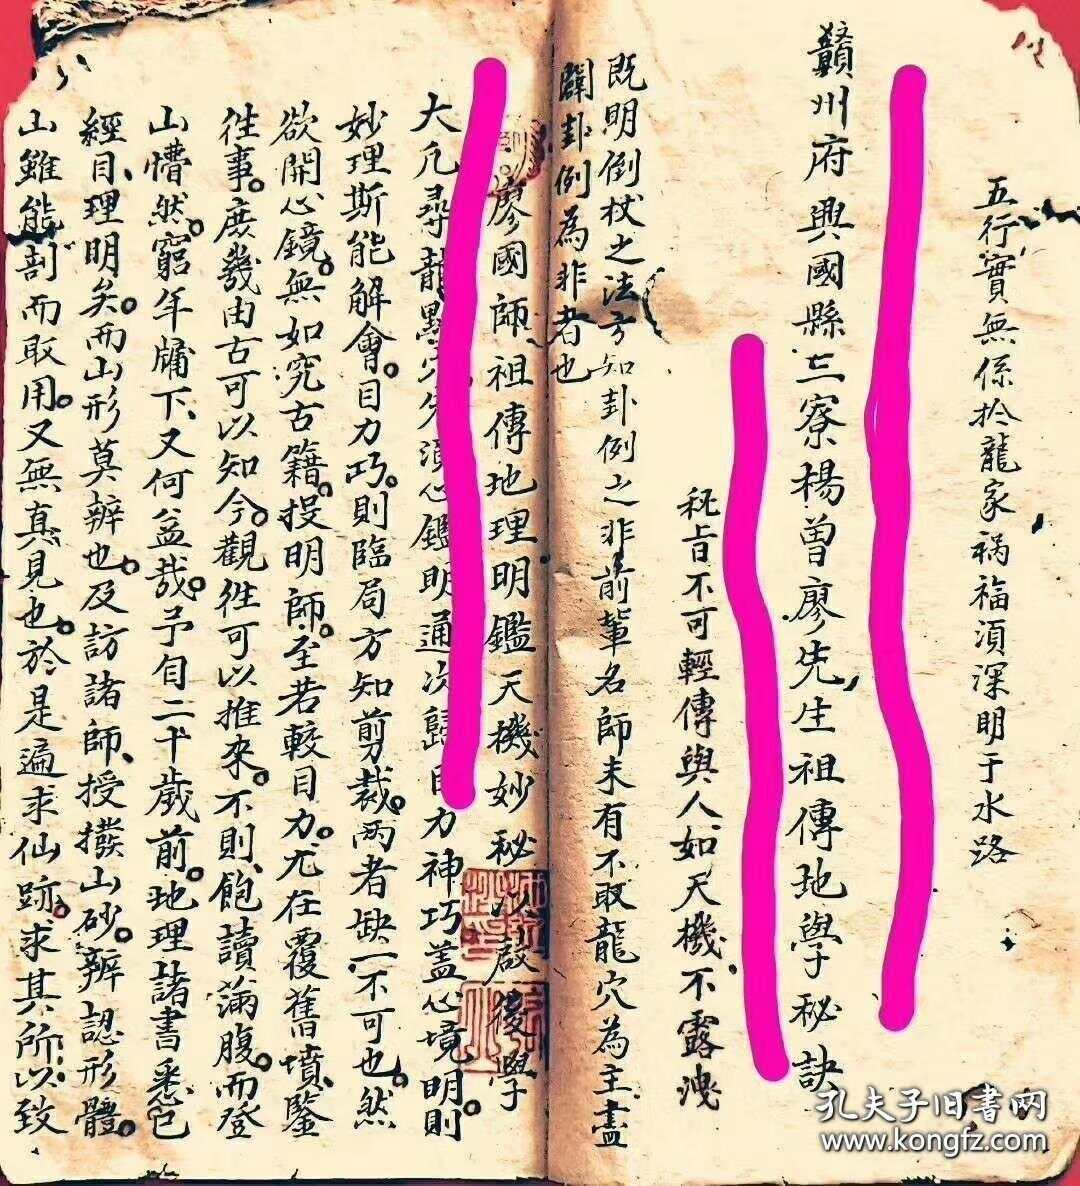 五行實無係扵龍家禍福湏深明于水路
贛州府興國縣三寮楊曾廖先生祖傳地學秘訣
秘旨不可輕傳與人如天機不露洩
既明倒杖之法方知卦例之非前輩名師未有不取龍穴為主盡
闢卦例為非者也
廖國師祖傳地理明鑑天機妙秘以啟後學
大凡尋龍點穴先湏心鑑明通次歸目力神巧蓋心境明則
妙理斯能解會目力巧則臨局方知剪裁两者缺一不可也然
欲開心鏡無如究古籍投明師至若較目力尤在覆舊墳鑒
徃事庶幾由古可以知今觀徃可以推來不則飽讀滿腹而登
山懵然窮年牖下又何益哉予自二十歲前地理諸書悉包
經目理明矣而山形莫辨也及訪諸師授撥山砂辨認形體
山雖能剖而取用又無真見也於是遍求仙跡求其所以致
孔夫子旧書网
www.kongfz.com